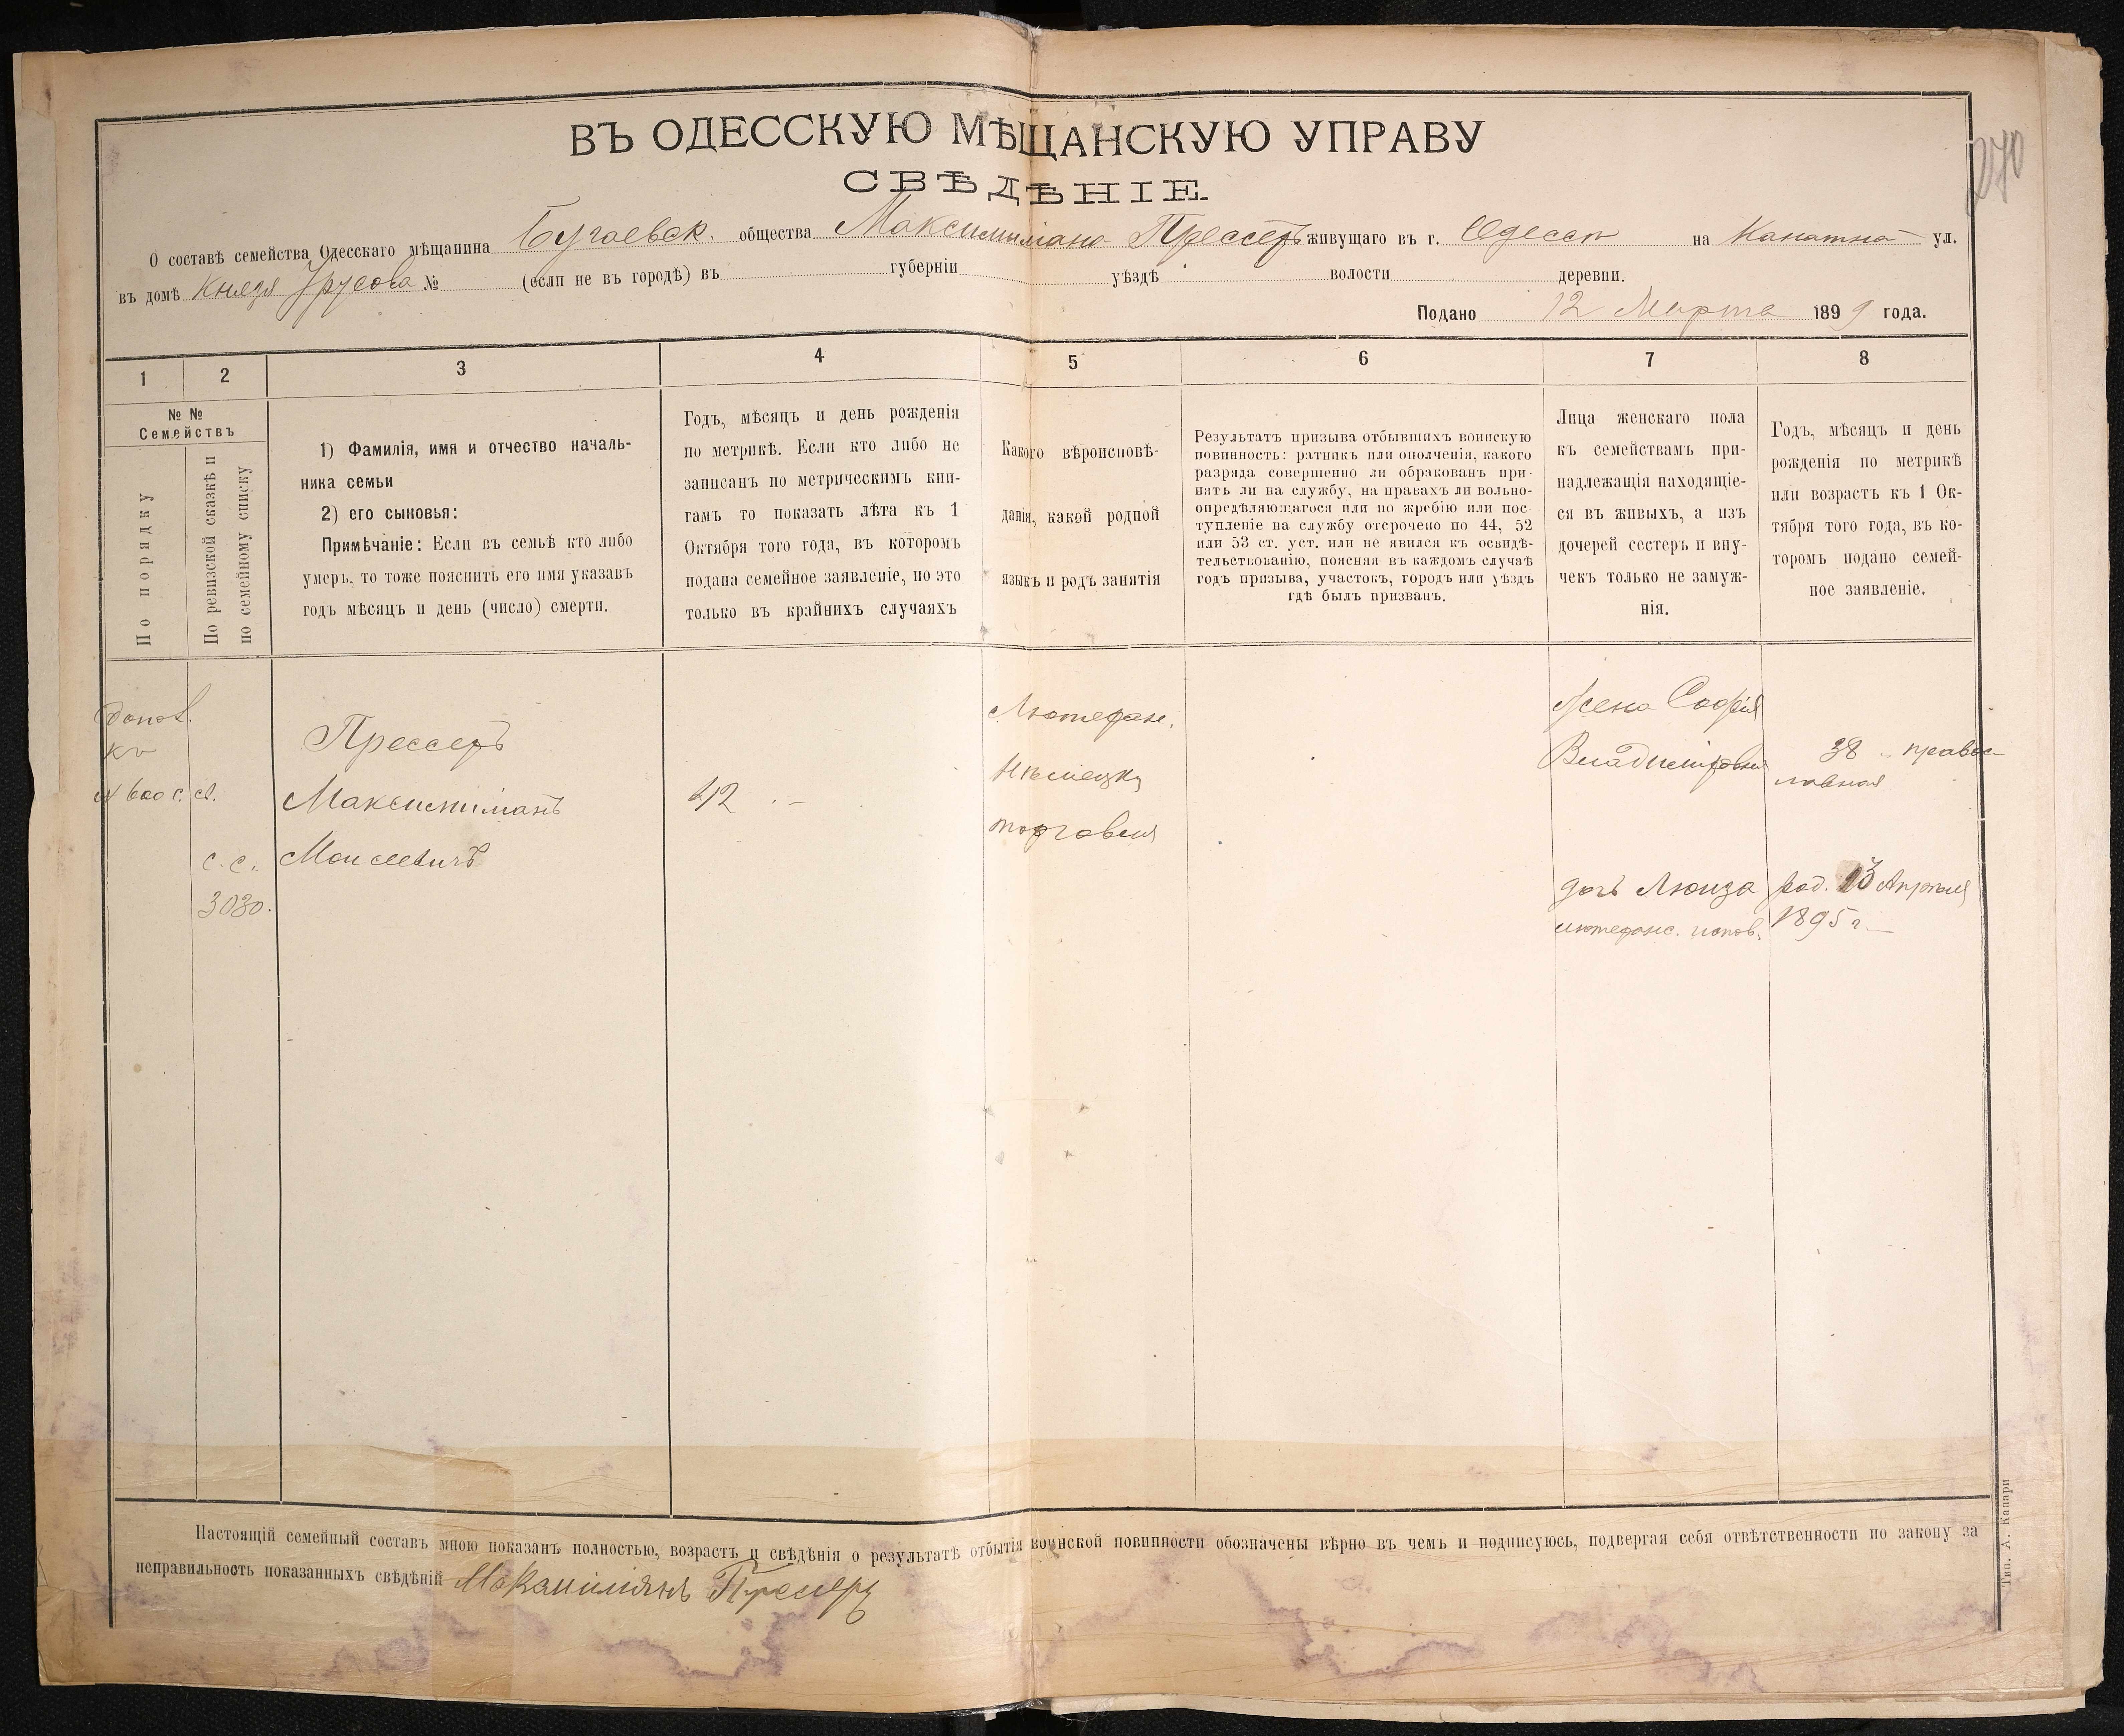 270
ВЪ ОДЕССКУЮ МѢЩАНСКУЮ УПРАВУ
СВѢДѢНІЕ.
О составѣ семейства Одесскаго мѣщанина Бугаевск. общества Максимиліана Прессеръ живущаго въ г. Одессѣ на Канатной ул.
въ домѣ Князя Урусова № (если не въ городѣ) въ губерніи уѣздѣ волости деревни.
Подано 12 Марта 1899 года.
1 2 3 4 5 6 7 8
№ №
Семействъ
По порядку
По ревизской сказкѣ и
по семейному списку
1) Фамилія, имя и отчество началь-
ника семьи
2) его сыновья:
Примѣчаніе: Если въ семьѣ кто либо
умеръ, то тоже пояснить его имя указавъ
годъ мѣсяцъ и день (число) смерти.
Годъ, мѣсяцъ и день рожденія
по метрикѣ. Если кто либо не
записанъ по метрическимъ кни-
гамъ то показать лѣта къ 1
Октября того года, въ которомъ
подана семейное заявленіе, но это
только въ крайнихъ случаяхъ
Какого вѣроисповѣ-
данія, какой родной
языкъ и родъ занятія
Результатъ призыва отбывшихъ воинскую
повинность: ратникъ или ополченія, какого
разряда совершенно ли обракованъ при-
нятъ ли на службу, на правахъ ли вольно-
опредѣляющагося или по жребію или пос-
тупленіе на службу отсрочено по 44, 52
или 53 ст. уст. или не явился къ освидѣ-
тельствованію, поясняя въ каждомъ случаѣ
годъ призыва, участокъ, городъ или уѣздъ
гдѣ былъ призванъ.
Лица женскаго пола
къ семействамъ при-
надлежащія находящіе-
ся въ живыхъ, а изъ
дочерей сестеръ и вну-
чекъ только не замуж-
нія.
Годъ, мѣсяцъ и день
рожденія по метрикѣ
или возрастъ къ 1 Ок-
тября того года, въ ко-
торомъ подано семей-
ное заявленіе.
къ
№ 600 с. с.
с. с.
3030.
Прессеръ
Максимиліанъ
Моисеевичъ
42
Лютеран.
Нѣмецкій
торговля
Жена Софія
Владиміровна
38 правос-
лавная
дочь Люиза
лютеранс. испов.
род. 13 Апрѣля
1895 г.
Настоящій семейный составъ мною показанъ полностью, возрастъ и свѣдѣнія о результатѣ отбытія воинской повинности обозначены вѣрно въ чемъ и подписуюсь, подвергая себя отвѣтственности по закону за
неправильность показанныхъ свѣдѣній Максимиліанъ Прессеръ
Тип. А. Капари